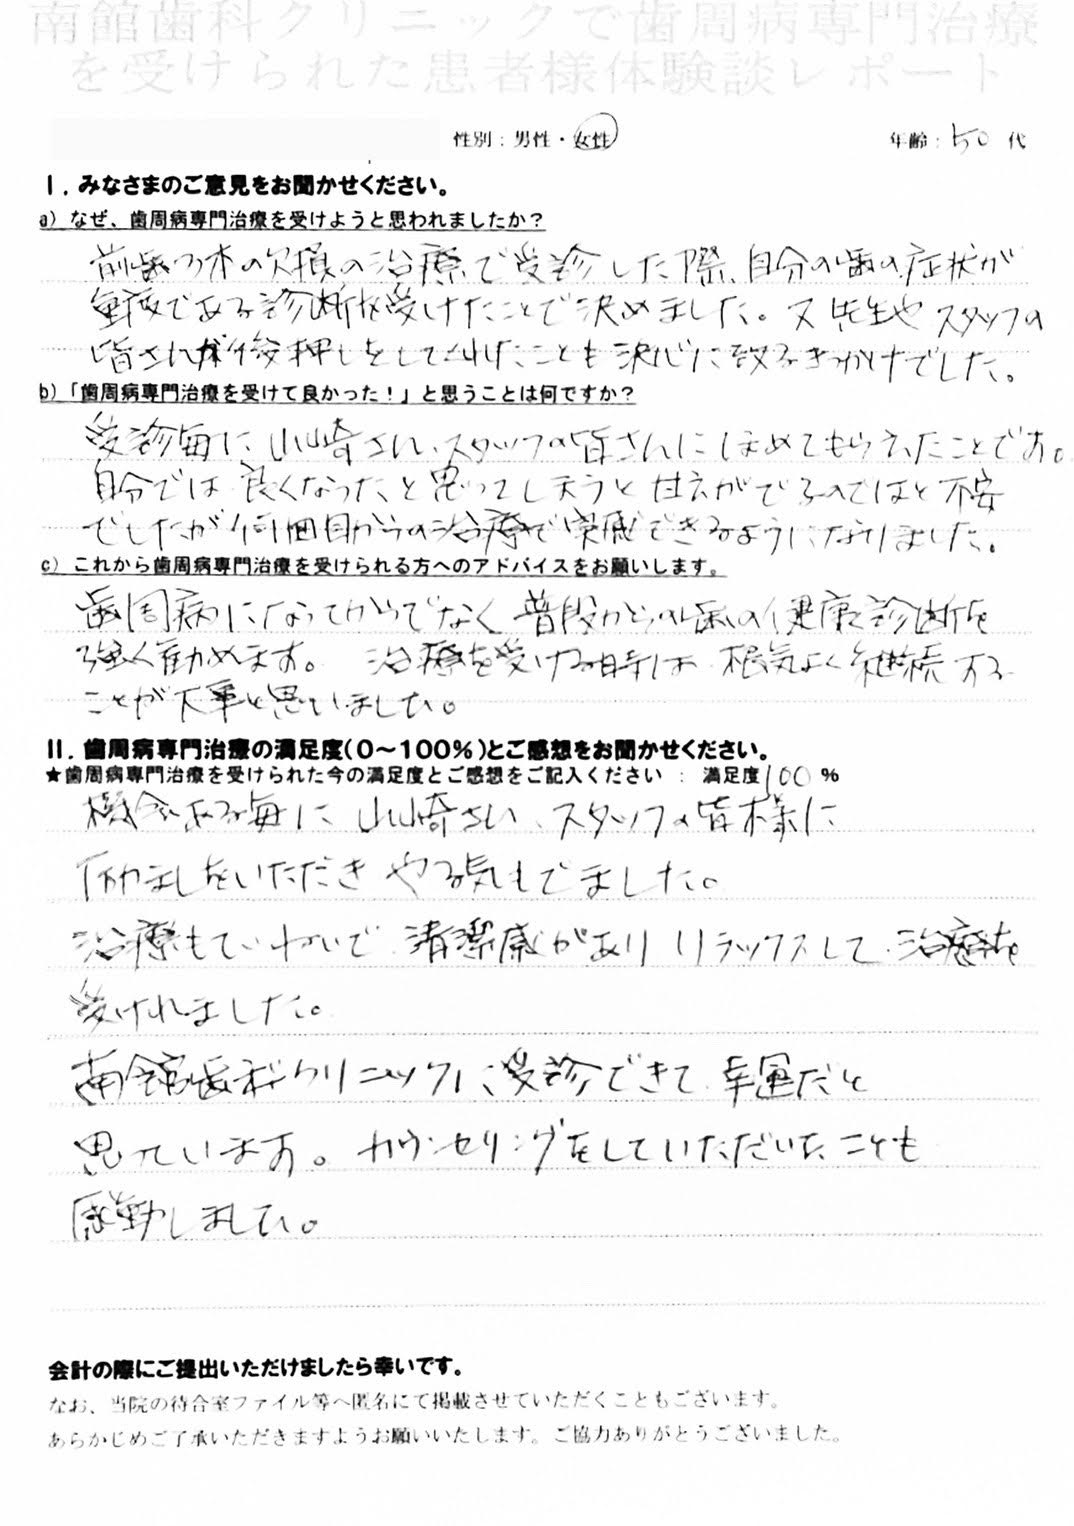 南館歯科クリニックで歯周病専門治療
を受けられた患者様体験談レポート
性別：男性・女性 年齢：50 代
Ⅰ．みなさまのご意見をお聞かせください。
a）なぜ、歯周病専門治療を受けようと思われましたか？
前歯の本の欠損の治療で受診した際、自分の歯の症状が
重度である診断を受けたことで決めました。又先生やスタッフの
皆さんが後押しをしてくれたことも決心に致るきっかけでした。
b）「歯周病専門治療を受けて良かった！」と思うことは何ですか？
受診毎に山崎さん、スタッフの皆さんにほめてもらえたことです。
自分では良くなったと思ってしまうと甘えがでるのではと不安
でしたが何回目からの治療で実感できるようになりました。
c）これから歯周病専門治療を受けられる方へのアドバイスをお願いします。
歯周病になってからでなく普段からの歯の健康診断を
強く勧めます。 治療を受ける時は根気よく継続する
ことが大事と思いました。
Ⅱ．歯周病専門治療の満足度（０～１００％）とご感想をお聞かせください。
★歯周病専門治療を受けられた今の満足度とご感想をご記入ください ： 満足度100 %
機会ある毎に山崎さん、スタッフの皆様に
励ましをいただきやる気もでました。
治療もていねいで清潔感がありリラックスして治療を
受けれました。
南館歯科クリニックに受診できて幸運だと
思っています。カウンセリングをしていただいたことも
感動しました。
会計の際にご提出いただけましたら幸いです。
なお、当院の待合室ファイル等へ匿名にて掲載させていただくこともございます。
あらかじめご了承いただきますようお願いいたします。ご協力ありがとうございました。